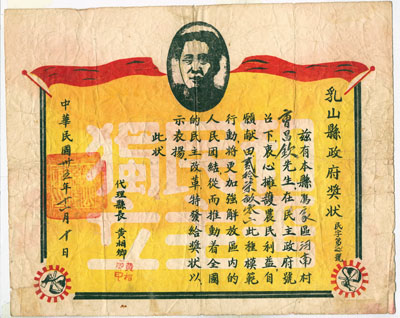 乳山縣政府獎狀
民字第號
茲有本縣馮家區河南村
曹昌欽先生在民主政府號
召下衷心擁護農民利益自
願献田貳拾畝此種模範
行動將更加強解放區內的
人民團結從而推動着全國
的民主改革特發給獎狀以
示表揚
此狀
代理縣長 黃相卿
中華民國卅五年十月十日
獨立